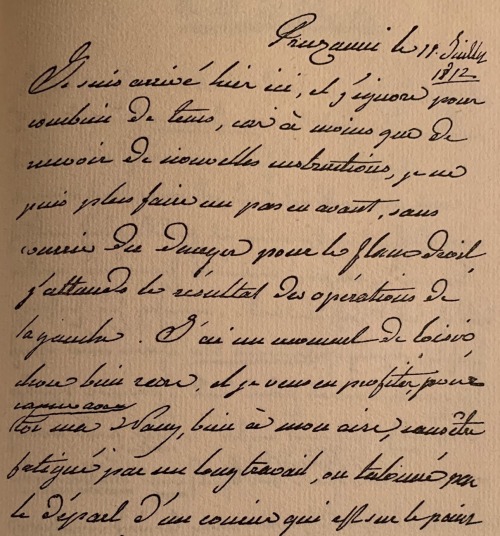 Pruzanni le 11. Juillet
1812
Je suis arrivé hier ici, et j'ignore pour
combien de tems, car à moins que de
recevoir de nouvelles instructions, je ne
puis plus faire un pas en avant, sans
courrir du danger pour le flanc droit
j'attends le résultat des opérations de
la gauche. J'ai un moment de loisir
chose bien rare, et je veux en profiter, pour
causer avec
toi ma Nany, bien à mon aise, sans être
fatigué par un long travail, ou talonné par
le départ d'un courier qui est sur le point